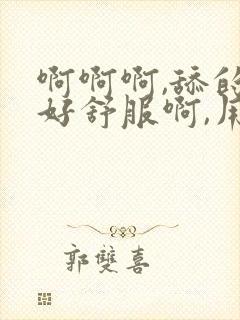 啊啊啊,舔的
好舒服啊,
郭雙喜